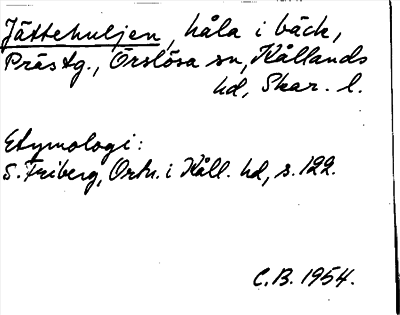 Jättehuljen, håla i bäck,
Prästg., Örslösa sn, Kållands
hd, Skar. l.
Etymologi:
S. Friberg, Ortn. i Kåll. hd, s. 122.
C.B. 1954.